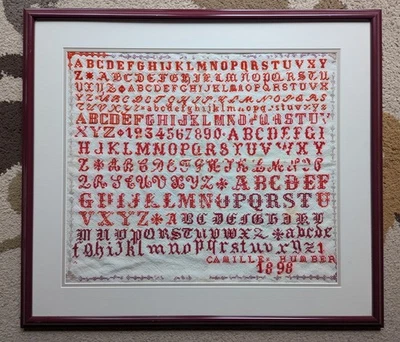 ABCDEFGHIJKLMNOPQRSTUVXY
Z * ABCDEFGHIJKLMNOPQRSTU
VXYZ * ABCDEFGHIJKLMNOPQRSTUVX
ABCDEFGHIJKLMNOPQRSTUVXYZ
ABCDEFGHIJKLMNOPQRSTUV
XYZ 1234567890 ABCDEFG
HIJKLMNOPQRSTUVWXY
Z * ABCDEFGHIJKLMNOP
QRSTUVXYZ * ABCDEF
GHIJKLMNOPQRSTU
VXYZ * ABCDEFGHIJKL
MNOPQRSTUVWXZ * abcde
fghijklmnopqrstuvxyz1
CAMILLE HUMBER
1898